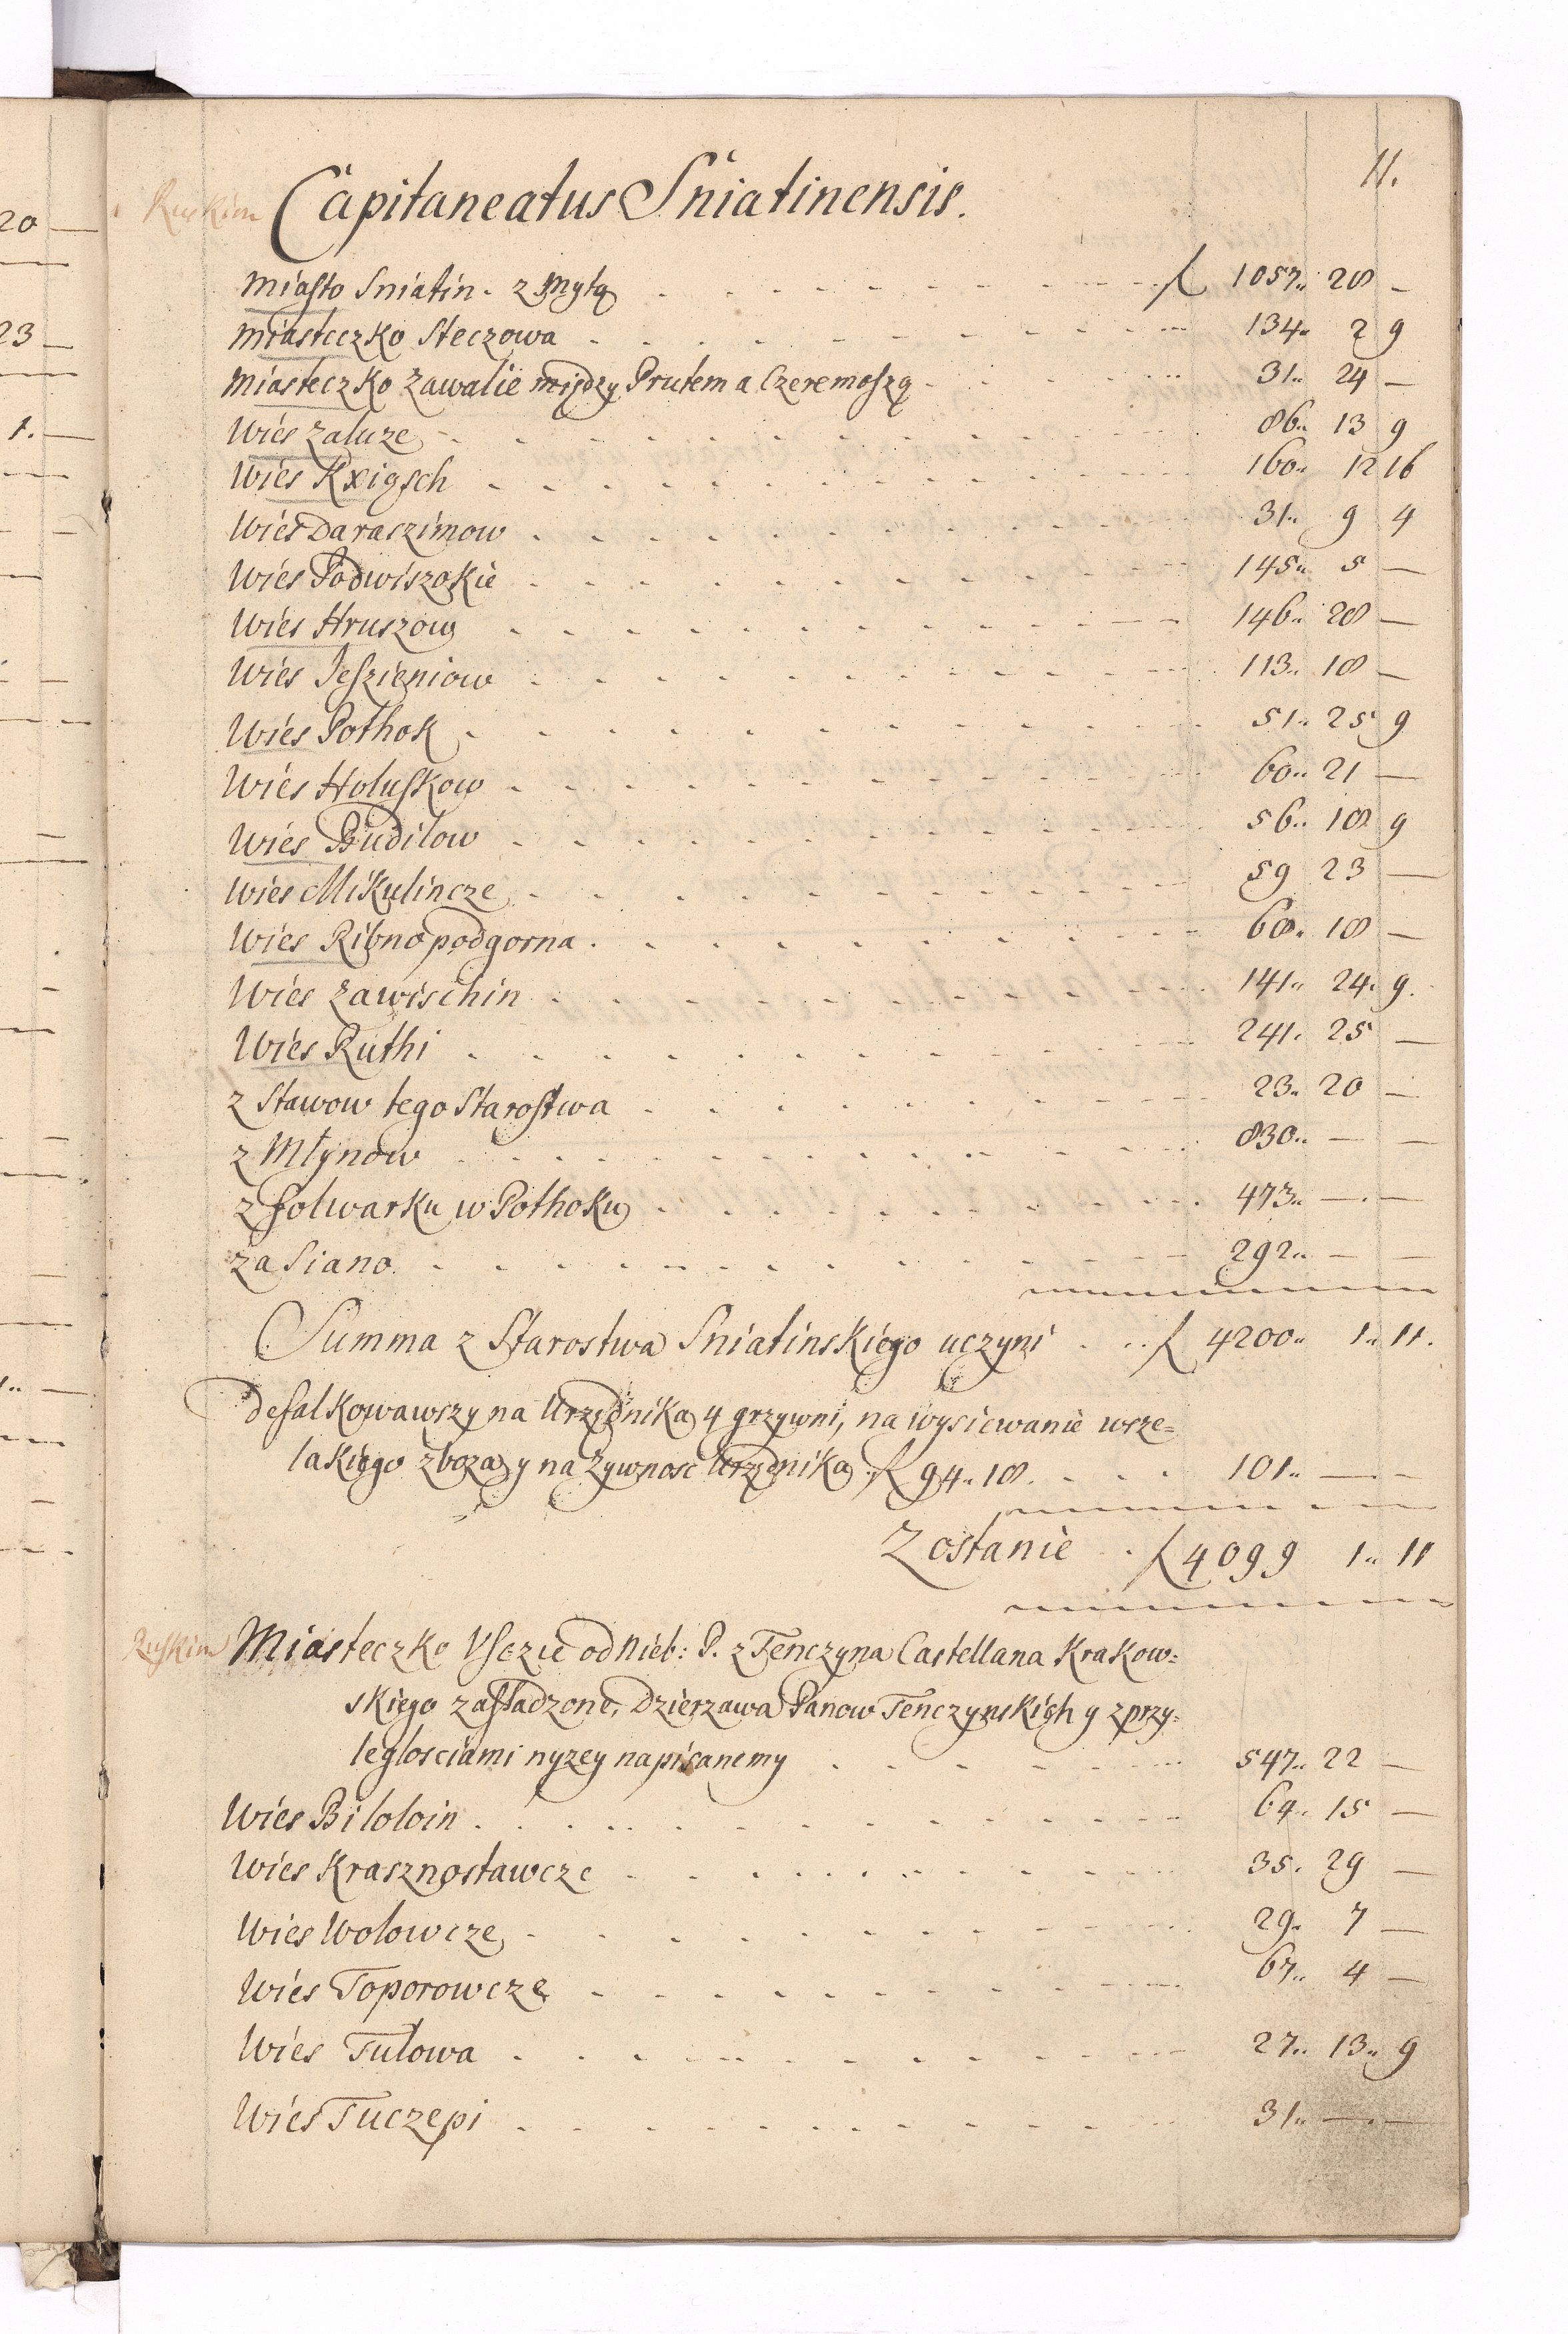 11.
Ruskim Capitaneatus Sniatinensis.
Miasto Sniatin. z Mytą f 1057.. 28 —
Miasteczko Steczowa 134.. 2 9
Miasteczko Zawalie między Prutem a Czeremoszą 31.. 24 —
Wies Zaluze 86.. 13 9
Wies Kxigsch 160.. 12 16
Wies Daraszimow 31.. 9 4
Wies Podwiszokie 145.. 5 —
Wies Hruszow 146.. 28 —
Wies Jeszieniow 113.. 18 —
Wies Pothok 51.. 25 9
Wies Holuskow 60.. 21 —
Wies Budilow 56.. 18 9
Wies Mikulincze 59 23 —
Wies Ribno podgorna 68.. 18 —
Wies Zawischin 141.. 24. 9.
Wies Ruthi 241. 25 —
z Stawow tego Starostwa 23.. 20 —
z Młynow 830.. — —
z folwarku w Pothoku 473.. —. —
za Siano 292.. — —
Summa z Starostwa Sniatinskiego uczyni f 4200.. 1.. 11.
defalkowawszy na Urzędnika 4 grzywni, na wysiewanie wsze=
lakiego zboza y na Zywnosc Urzędnika f 94.. 18. 101.. — —
Zostanie f 4099 1.. 11
Ruskim Miasteczko Usczie od Nieb: P. z Tenczyna Castellana Krakow=
skiego zasadzone, Dzierzawa Panow Tenczynskich y z przy=
leglosciami nyzey napisanemy 547.. 22 —
Wies Biloloin 64.. 15 —
Wies Krasznostawcze 35. 29 —
Wies Wolowcze 29.. 7 —
Wies Toporowcze 67.. 4 —
Wies Tulowa 27.. 13.. 9
Wies Tuczepi 31.. —. —
20 —
23 —
1. —